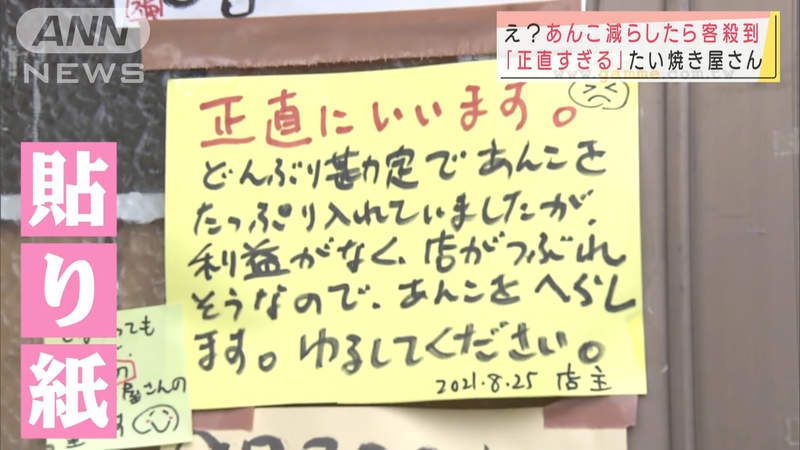 ANN
NEWS
え？あんこ減らしたら客殺到
「正直すぎる」たい焼き屋さん
www.gamme.com.tw
貼り紙
正直にいいます。
どんぶり勘定であんこを
たっぷり入れていましたが、
利益がなく、店がつぶれ
そうなので、あんこをへらし
ます。ゆるしてください。
2021.8.25 店主
っても
屋さんの